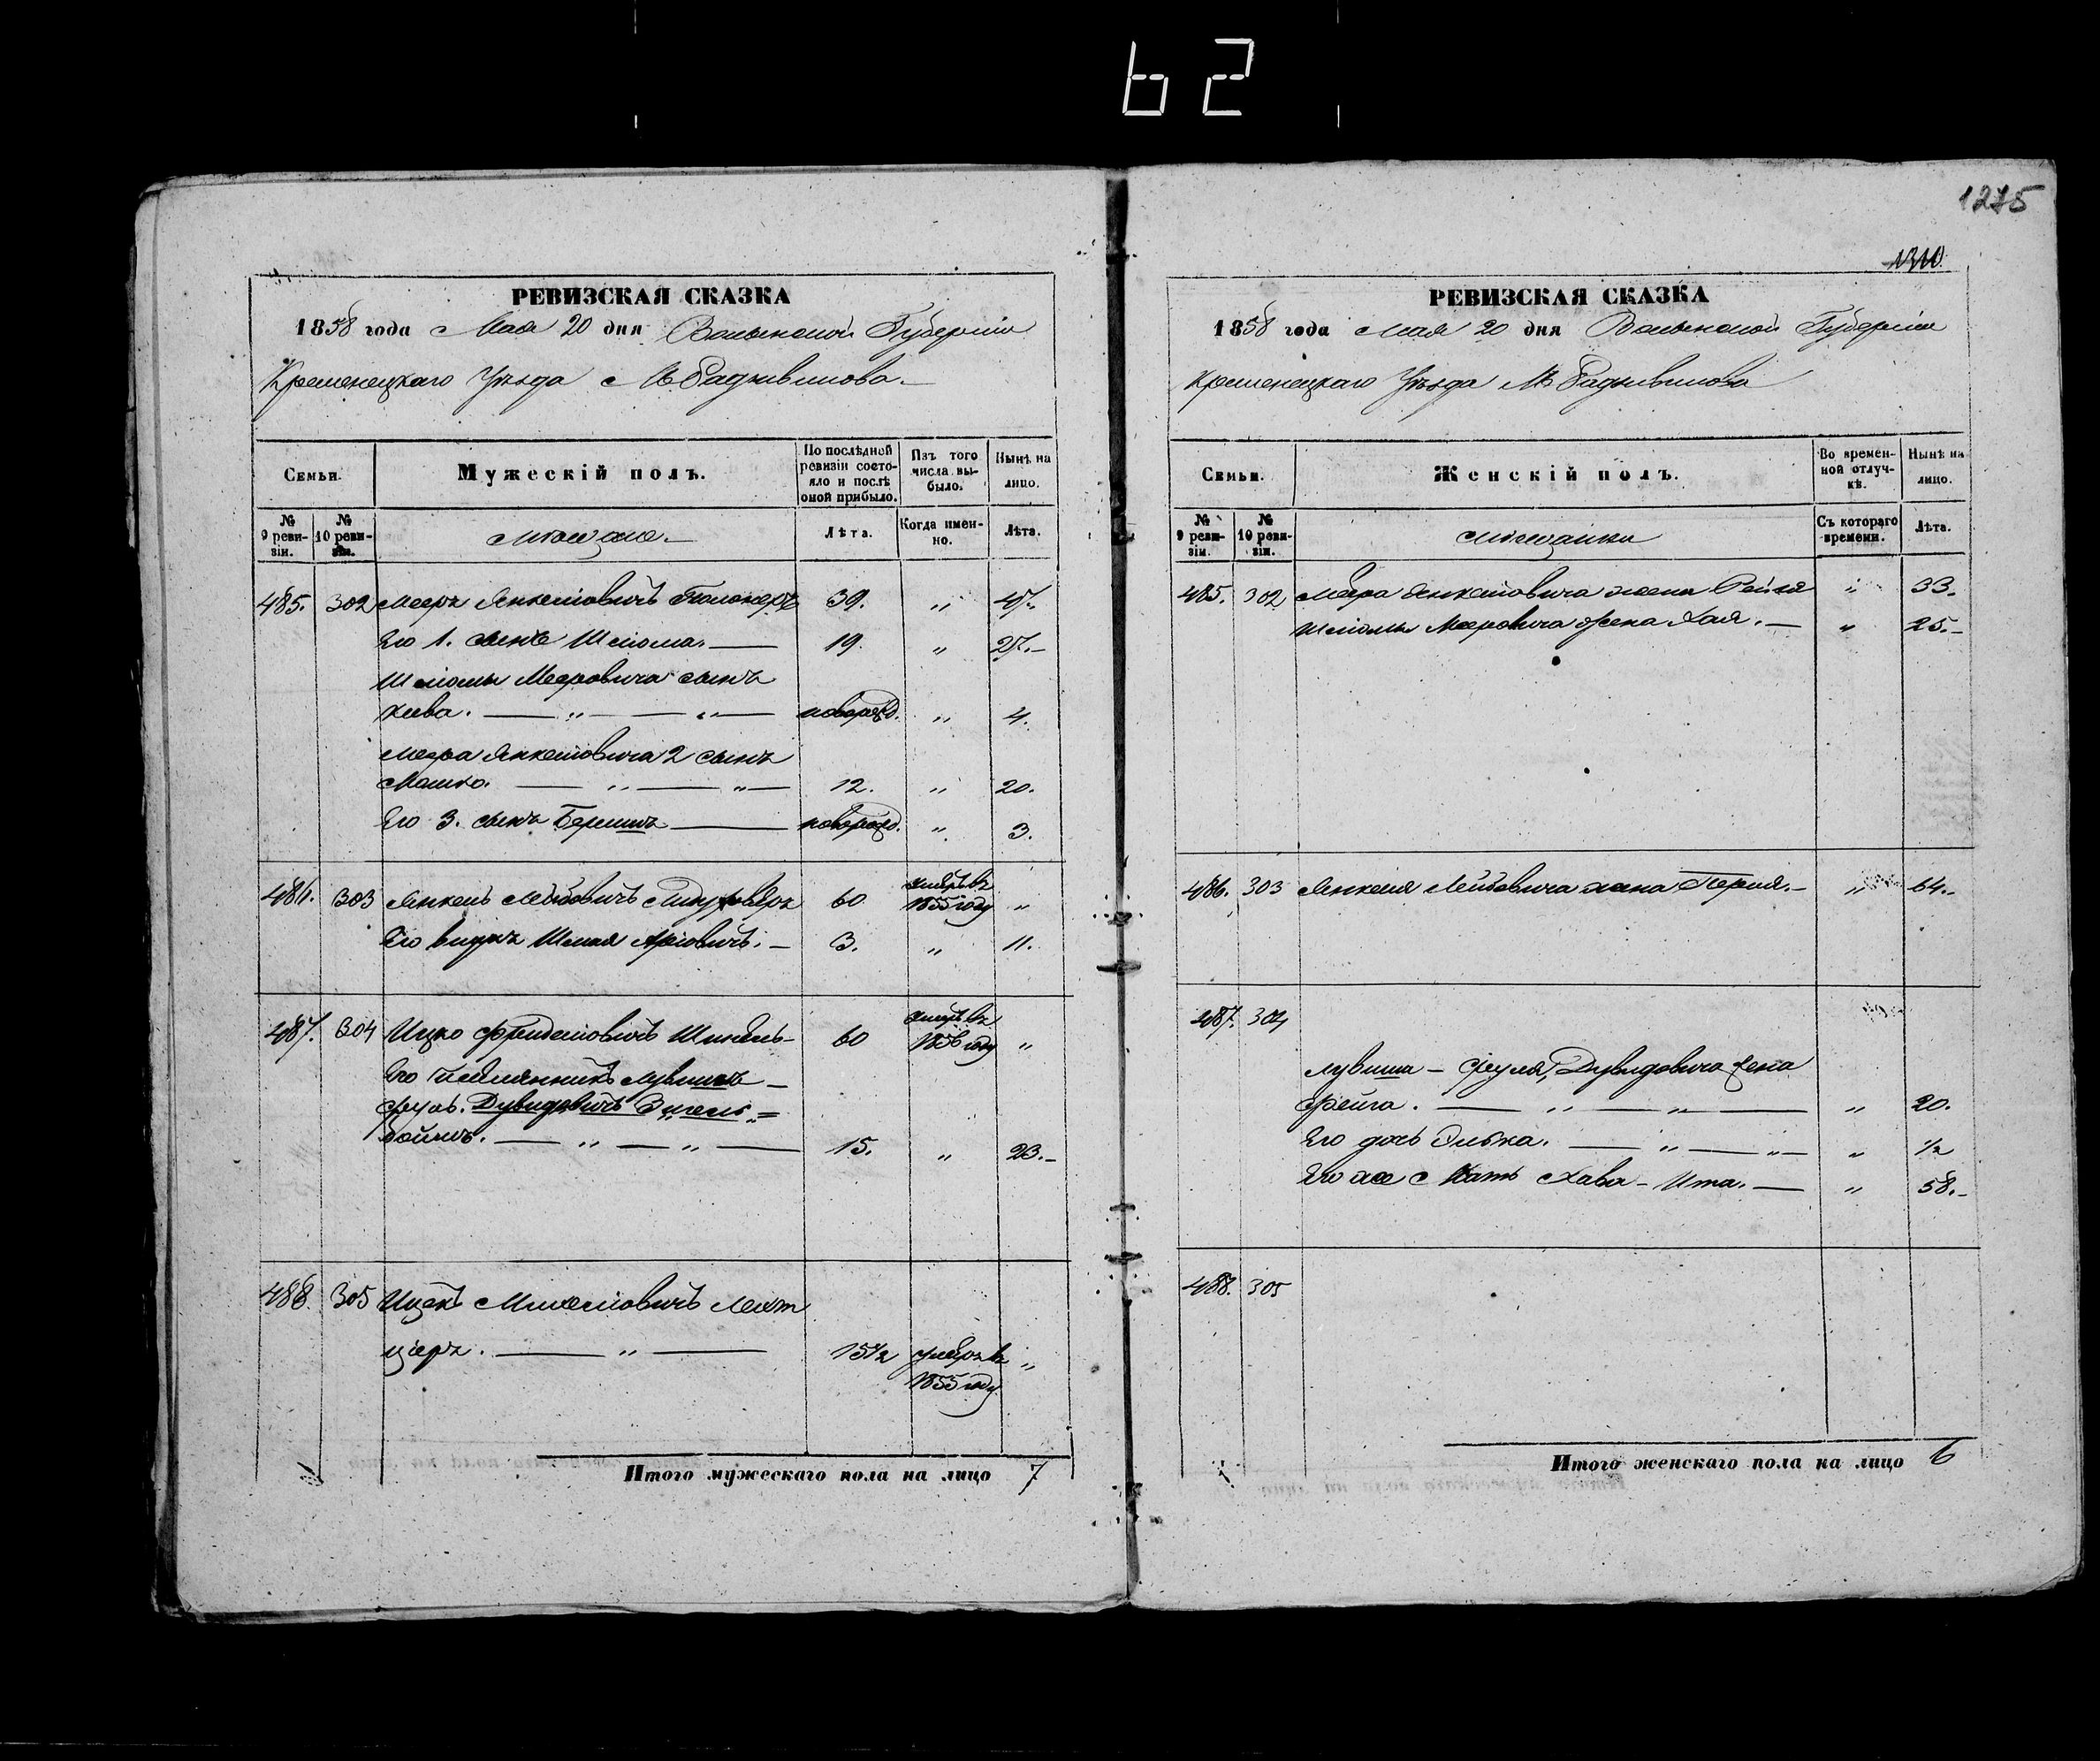 62
1275
1310
РЕВИЗСКАЯ СКАЗКА
1858 года Мая 20 дня Волынской Губернiи
Кременецкаго Уѣзда М Радзивилова
Семьи.
Мужескiй полъ.
По послѣдней ревизiи состояло и послѣ оной прибыло.
Изъ того числа выбыло.
Нынѣ на лицо.
№ 9 ревизiи.
№ 10 ревизiи.
Мѣщане
Лѣта.
Когда именно.
Лѣта.
485. 302 Мееръ Янкелiовичъ 39. „ 47.
Его 1. сынъ Шлiома. 19. „ 27.
Шлiомы Мееровича сынъ
Кива. новорожд. „ 4.
Меера Янкелiовича 2 сынъ
Мошко. 12. „ 20.
Его 3. сынъ Беришъ новорожд. „ 3.
486. 303 Янкель Лейбовичъ 60 умеръ въ 1855 году „
Его внукъ Шмая 3. „ 11.
487. 304 Ицко 60 умеръ въ 1856 году „
Его племянникъ Лувишъ
Сруль Дувидовичъ Экель=
боймъ. 15. „ 23.
488. 305 Ицекъ Лихт
цiеръ. 15½ умеръ въ 1855 году „
Итого мужескаго пола на лицо 7
РЕВИЗСКАЯ СКАЗКА
1858 года Мая 20 дня Волынской Губернiи
Кременецкаго Уѣзда М Радзивилова
Семьи.
Женскiй полъ.
Во временной отлучкѣ.
Нынѣ на лицо.
№ 9 ревизiи.
№ 10 ревизiи.
Мѣщанки
Съ котораго времени.
Лѣта.
485. 302 Меера Янкелiовича жена Рейзя „ 33.
Шлiомы Мееровича жена Хая. „ 25.
486. 303 Янкеля Лейбовича жена Перля. „ 64.
487. 304
Лувиша - Сруля, Дувидовича жена
Фейга. „ 20.
Его дочь Элька. „ ½
Его же Мать Хава - Ита. „ 58.
488. 305
Итого женскаго пола на лицо 6